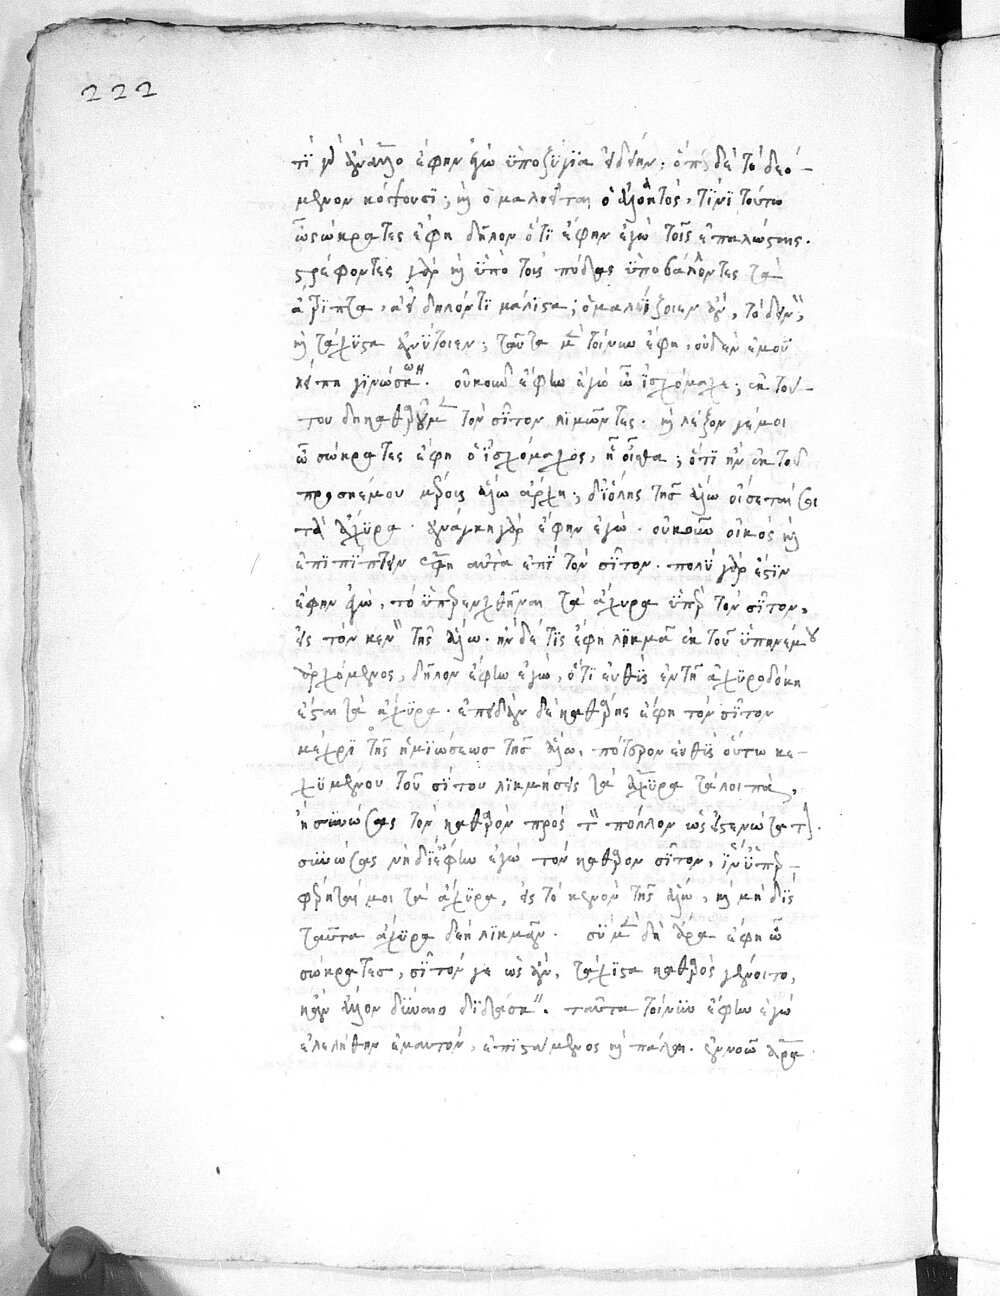 222
τί γὰρ ἀνάλλο ἔφην ἐγὼ ὑποζύγια εἰδείην; ὅπ δὲ τὸ δεό-
μενον κόψουσι; καὶ ὁμαλιεῖται ὁ ἀλοητὸς, τίνι τούτω
ὦ σώκρατες ἔφη δῆλον ὅτι ἔφην ἐγὼ τοῖς ἐπαλώσταις.
στρέφοντες γὰρ καὶ ὑπὸ τοὺς πόδας ὑποβάλλοντες τὰ
ἄτριπτα, ἀεὶ δηλονότι μάλιστα; ὁμαλίζοιεν ἂν, τὸ δῖνον,
καὶ τάχιστα ἀνύτοιεν; ταῦτα μὲν τοίνυν ἔφη, οὐδὲν ἐμοῦ
λείπῃ γινώσκων. οὐκοῦν ἔφην ἐγὼ ὦ ἰσχόμαχε; ἐκ τού-
του δὴ καθαροῦμεν τὸν σῖτον λικμῶντες. καὶ λέξον γέ μοι
ὦ σώκρατες ἔφη ὁ ἰσχόμαχος, ἦ οἶσθα; ὅτι ἢν ἐκ τοῦ
προσηνέμου μέρους ἅλω ἄρχῃ; δι' ὅλης τῆς ἅλω οἴσεταί σοι
τὰ ἄχυρα. ἀνάγκη γὰρ ἔφην ἐγώ. οὐκοῦν εἰκὸς καὶ
ἐπιπίπτειν ἔφη αὐτὰ ἐπὶ τὸν σῖτον. πολὺ γὰρ ἐστὶν
ἔφην ἐγὼ, τὸ ὑπερενεχθῆναι τὰ ἄχυρα ὑπὲρ τὸν σῖτον,
εἰς τὸν κενὸν τῆς ἅλω. ἢν δέ τις ἔφη λικμᾷ ἐκ τοῦ ὑπηνέμου
ἀρχόμενος, δῆλον ἔφην ἐγὼ, ὅτι εὐθὺς ἐν τῇ ἀχυροδόκῃ
ἔσται τὰ ἄχυρα. ἐπειδὰν δὲ καθάρῃς ἔφη τὸν σῖτον
μέχρι τῆς ἡμισώσεως τῆς ἅλω, πότερον εὐθὺς οὕτω κε-
χυμένου τοῦ σίτου λικμήσεις τὰ ἄχυρα τὰ λοιπὰ,
ἢ συνώσας τὸν καθαρὸν πρὸς τὸν πόλον ὡς εἰς στενώτατον.
συνώσας νὴ δί' ἔφην ἐγὼ τὸν καθαρὸν σῖτον, ἵν' ὑπερ-
φέρηταί μοι τὰ ἄχυρα, εἰς τὸ κενὸν τῆς ἅλω, καὶ μὴ δὶς
ταῦτα ἄχυρα δέῃ λικμᾶν. σὺ μὲν δὴ ἄρα ἔφη ὦ
σώκρατες, σῖτόν γε ὡς ἂν, τάχιστα καθαρὸς γένοιτο,
κἂν ἄλλον δύναιο διδάσκειν. ταῦτα τοίνυν ἔφην ἐγὼ
ἐλελήθην ἐμαυτὸν, ἐπιστάμενος καὶ πάλαι. ἐννοῶ ἄρα